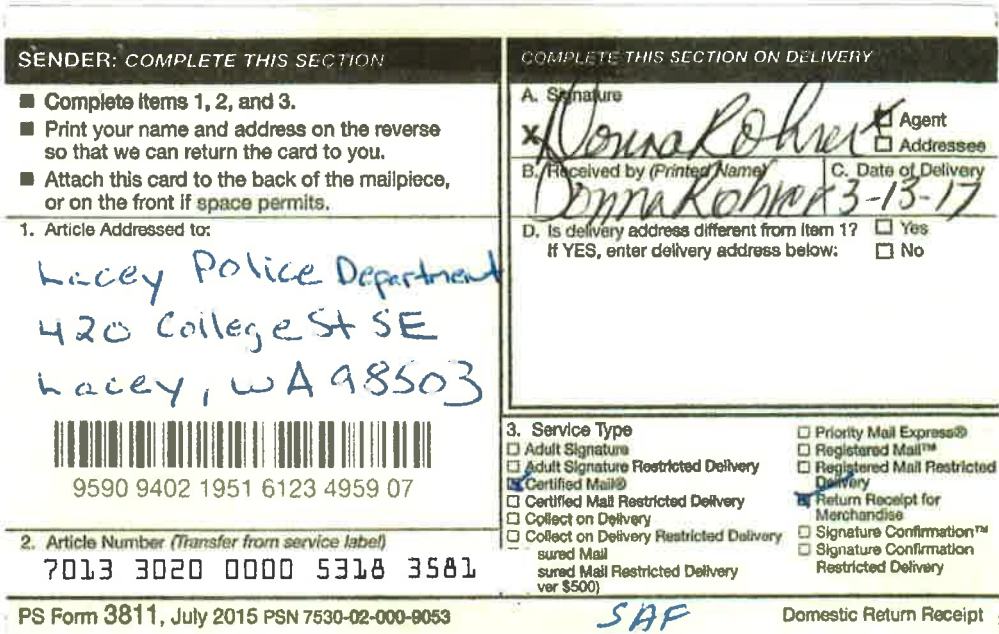 SENDER: COMPLETE THIS SECTION
■ Complete items 1, 2, and 3.
■ Print your name and address on the reverse
so that we can return the card to you.
■ Attach this card to the back of the mailpiece,
or on the front if space permits.
1. Article Addressed to:
Lacey Police Department
420 College St SE
Lacey, WA 98503
9590 9402 1951 6123 4959 07
2. Article Number (Transfer from service label)
7013 3020 0000 5318 3581
COMPLETE THIS SECTION ON DELIVERY
A. Signature
X Donna Rohrer
☑ Agent
☐ Addressee
B. Received by (Printed Name)
Donna Rohrer
C. Date of Delivery
3-13-17
D. Is delivery address different from item 1? ☐ Yes
If YES, enter delivery address below: ☐ No
3. Service Type
☐ Adult Signature
☐ Adult Signature Restricted Delivery
☑ Certified Mail®
☐ Certified Mail Restricted Delivery
☐ Collect on Delivery
☐ Collect on Delivery Restricted Delivery
sured Mail
sured Mail Restricted Delivery
ver $500)
☐ Priority Mail Express®
☐ Registered Mail™
☐ Registered Mail Restricted
Delivery
☑ Return Receipt for
Merchandise
☐ Signature Confirmation™
☐ Signature Confirmation
Restricted Delivery
PS Form 3811, July 2015 PSN 7530-02-000-9053
SAF
Domestic Return Receipt